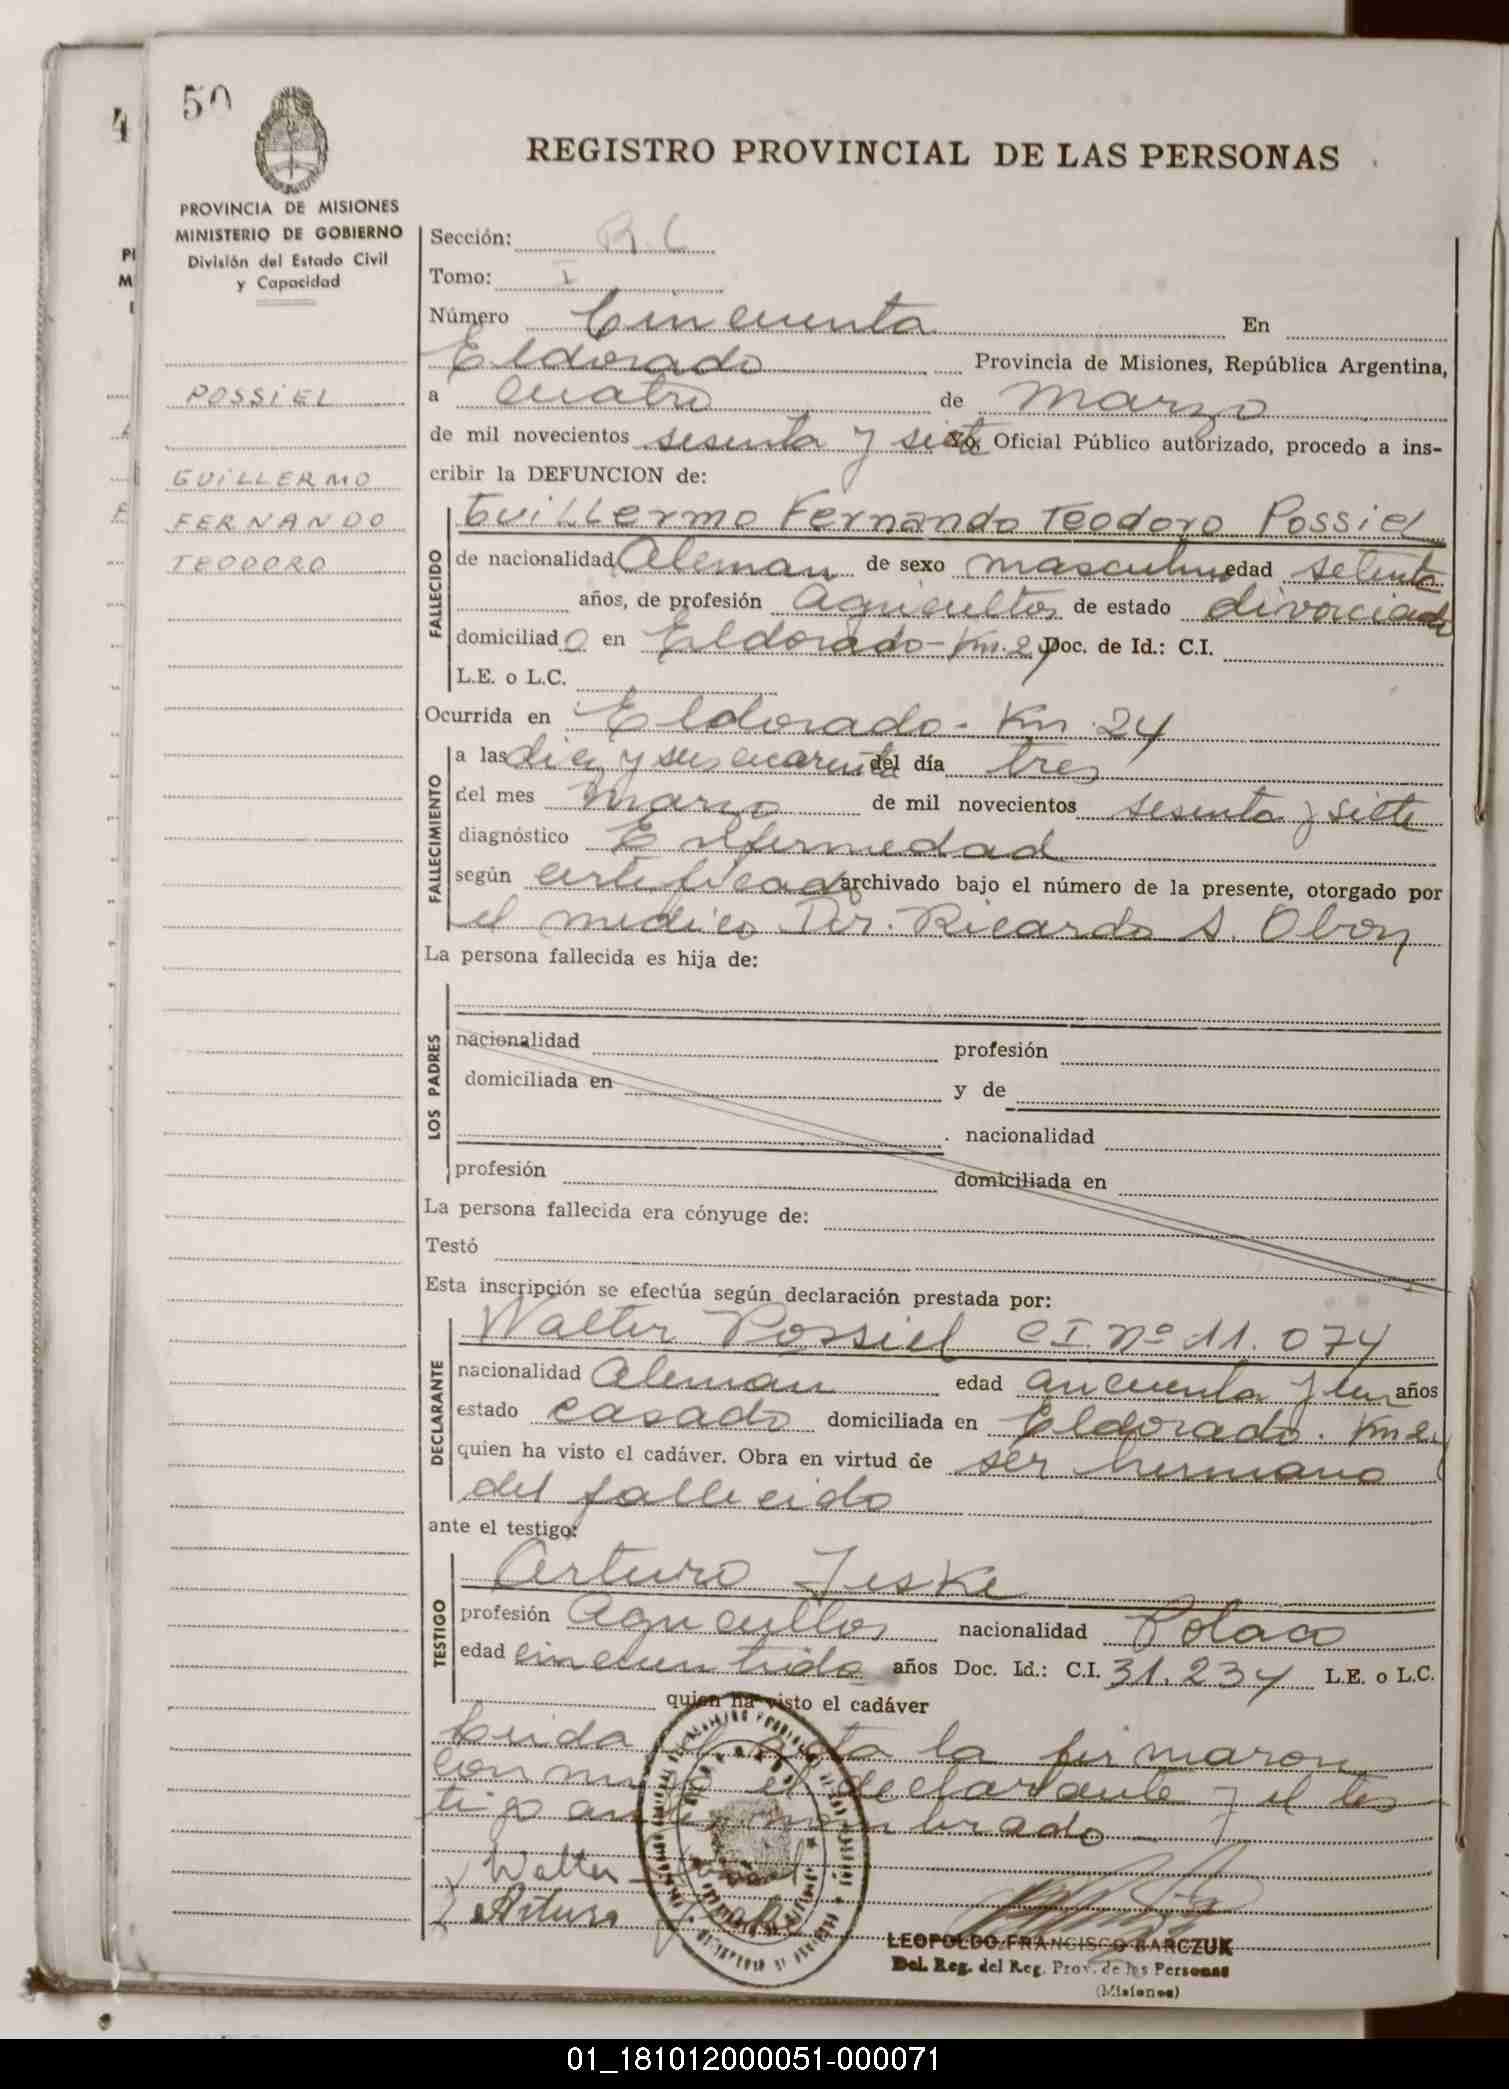 50
4
REGISTRO PROVINCIAL DE LAS PERSONAS
PROVINCIA DE MISIONES
MINISTERIO DE GOBIERNO
División del Estado Civil
y Capacidad
POSSIEL
GUILLERMO
FERNANDO
TEODORO
Sección: R.C
Tomo: I
Número Cincuenta En
Eldorado Provincia de Misiones, República Argentina,
a cuatro de marzo
de mil novecientos sesenta y siete Yo, Oficial Público autorizado, procedo a ins-
cribir la DEFUNCION de:
FALLECIDO
Guillermo Fernando Teodoro Possiel
de nacionalidad Aleman de sexo masculino edad setenta
años, de profesión Agricultor de estado divorciado
domiciliado en Eldorado - Km. 24 Doc. de Id.: C.I.
L.E. o L.C.
Ocurrida en Eldorado - Km 24
FALLECIMIENTO
a las diez y seis cuarenta del día tres
del mes marzo de mil novecientos sesenta y siete
diagnóstico Enfermedad
según certificado archivado bajo el número de la presente, otorgado por
el medico Dr. Ricardo A. Obon
La persona fallecida es hija de:
LOS PADRES
nacionalidad profesión
domiciliada en y de
nacionalidad
profesión domiciliada en
La persona fallecida era cónyuge de:
Testó
Esta inscripción se efectúa según declaración prestada por:
DECLARANTE
Walter Possiel C.I. Nº 11.074
nacionalidad Aleman edad cincuenta y un años
estado casado domiciliada en Eldorado. Km 24
quien ha visto el cadáver. Obra en virtud de ser hermano
del fallecido
ante el testigo:
TESTIGO
Arturo Jeske
profesión Agricultor nacionalidad Polaco
edad cincuentidos años Doc. Id.: C.I. 31.234 L.E. o L.C.
quien ha visto el cadáver
Leida el acta la firmaron
conmigo el declarante y el tes
tigo antes nombrado
Walter Possiel
Arturo Jeske
LEOPOLDO FRANCISCO BARCZUK
Del. Reg. del Reg. Prov. de las Personas
(Misiones)
01_181012000051-000071